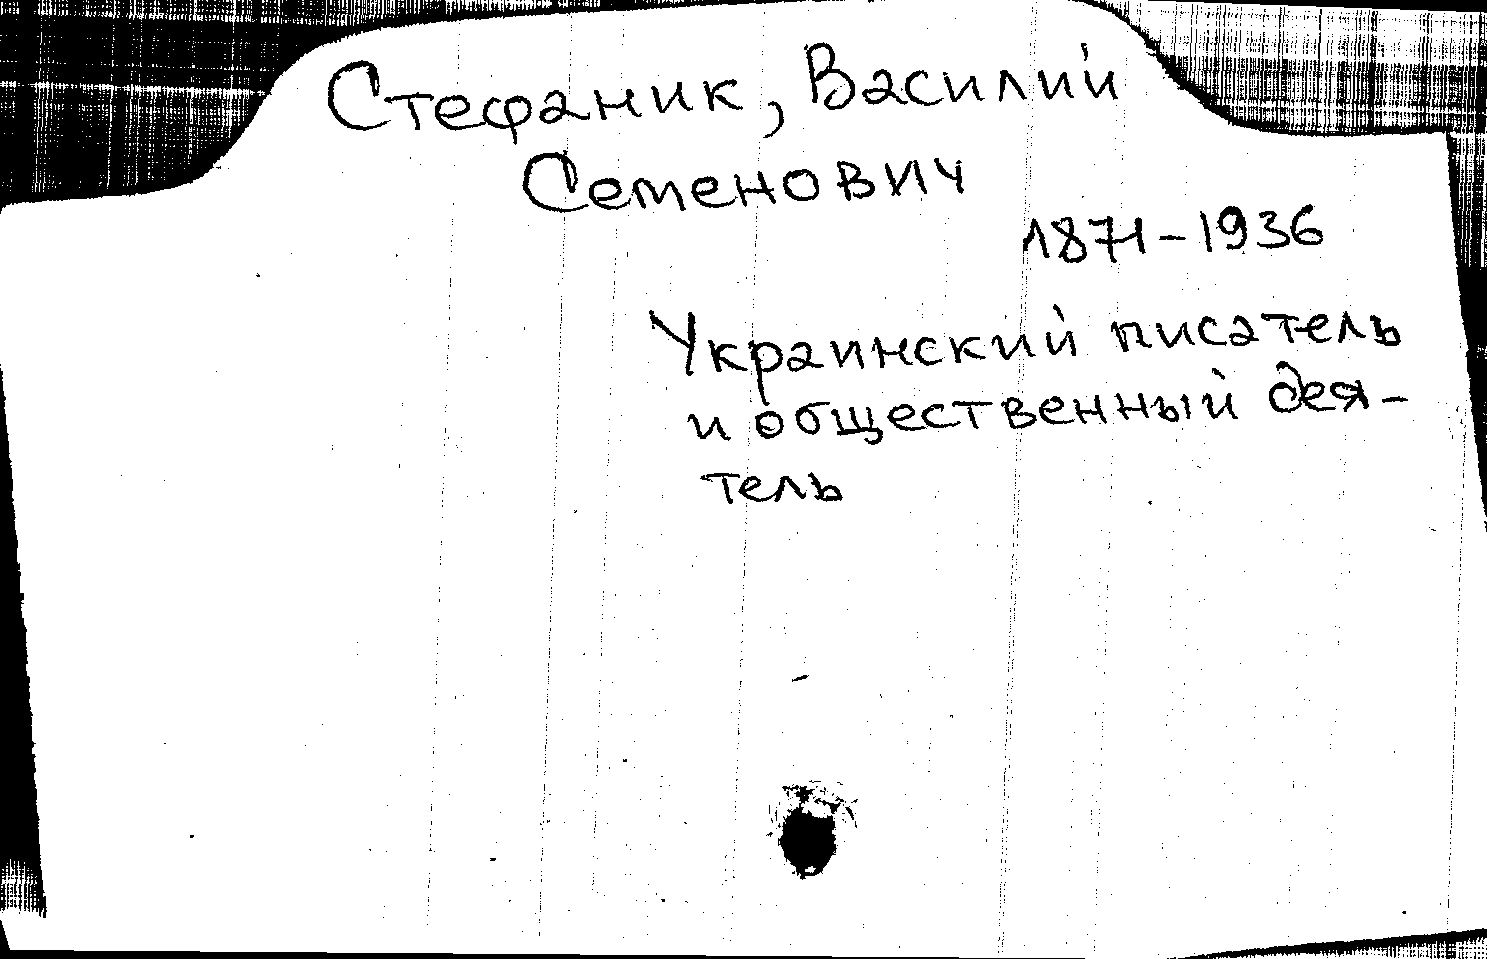 Стефаник, Василий
Семенович
1871-1936
Украинский писатель
и общественный дея-
тель